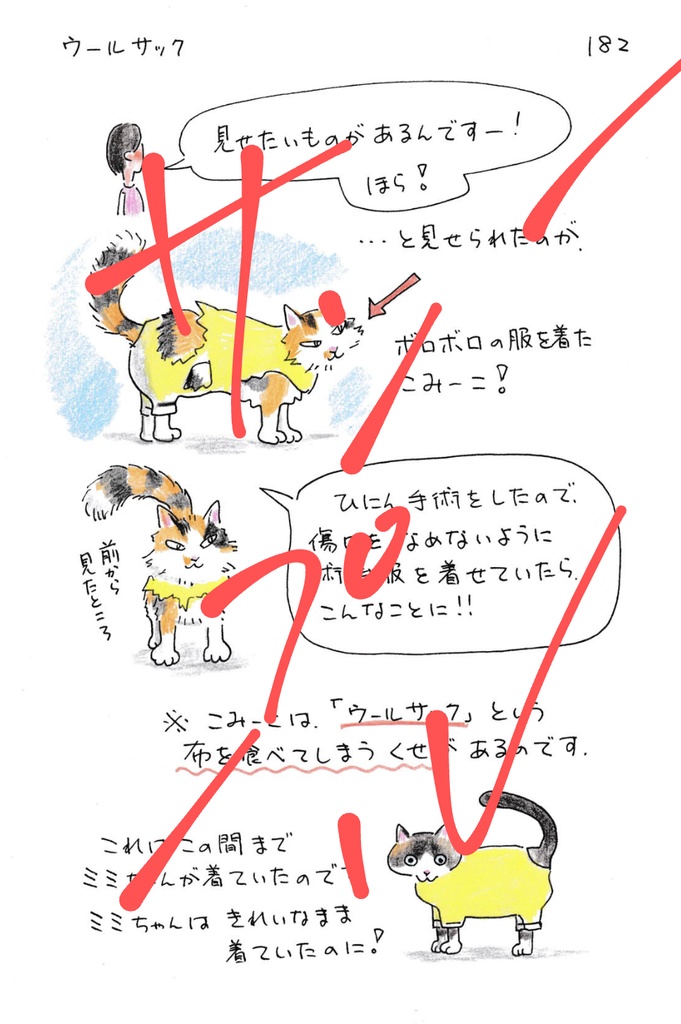 ウールサック
182
見せたいものがあるんですー!
ほら!
…と見せられたのが、
ボロボロの服を着た
こみーこ!
前から
見たところ
ひにん手術をしたので、
傷口をなめないように
服を着せていたら、
こんなことに!!
※こみーこは、「ウールサック」という
布を食べてしまうくせがあるのです。
これはこの間まで
ミミちゃんが着ていたので
ミミちゃんはきれいなまま
着ていたのに!
サンプル